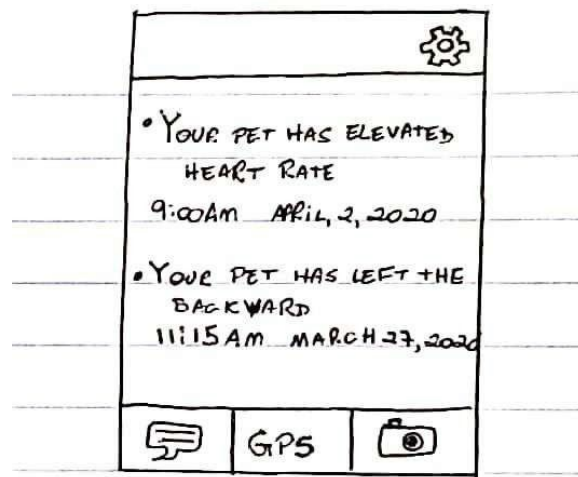 • YOUR PET HAS ELEVATED
HEART RATE
9:00AM APRIL, 2, 2020
• YOUR PET HAS LEFT THE
BACKWARD
11:15AM MARCH 27, 2020
GPS